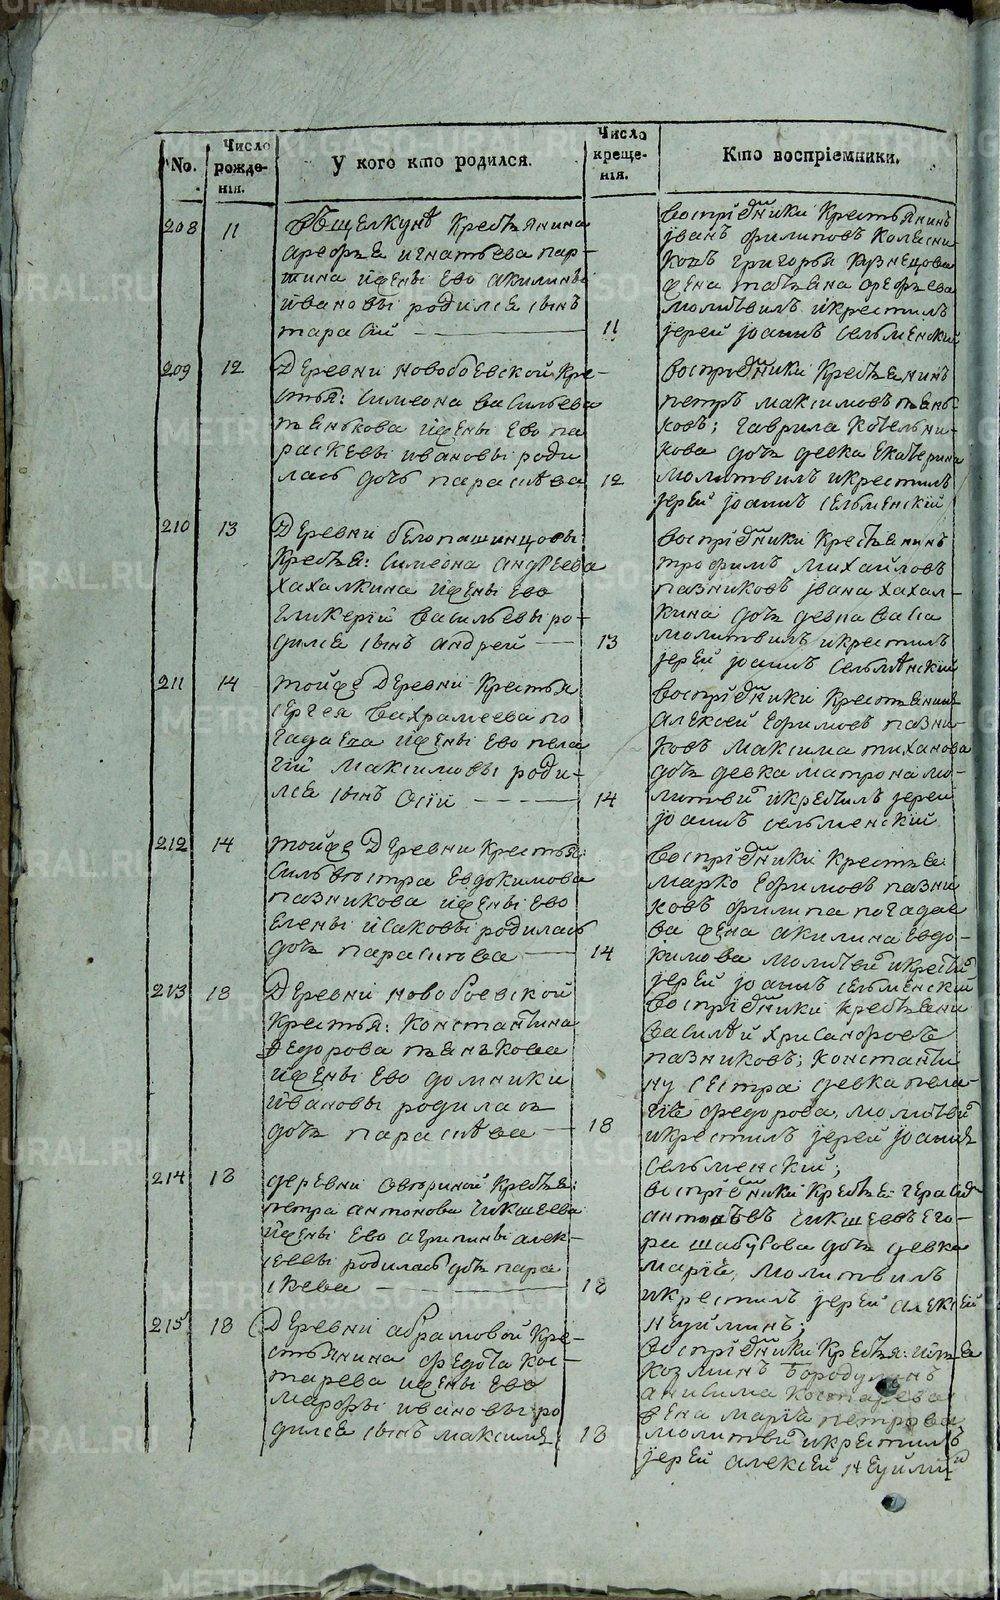 No.
Число рожденія.
У кого кто родился.
Число крещенія.
Кто воспріемники.
208
11
Крестьянина
арефья игнатьева пар-
шина ижены Ево акилины
ивановы родился сынъ
тарасій
11
воспріемники Крестьянинъ
Іванъ филиповъ Колесни-
ковъ григорья Кузнецова
жена татьяна арефьева
молитвилъ икрестилъ
Іерей Іоаннъ сельменский
209
12
Деревни новобоевской Кре-
стья: симеона васильева
тенькова ижены Ево па
раскевы ивановы роди
лась дочь парасковья
12
воспріемники Крестьянинъ
петръ максимовъ тень-
ковъ; гаврила Котельни-
кова дочь девка екатерина
молитвилъ икрестилъ
Іерей Іоаннъ сельменский
210
13
Деревни белопашинцовы
Крестья: симеона андреева
хахалкина ижены Ево
гликерии васильевы ро-
дился сынъ андрей
13
воспріемники Крестьянинъ
трофимъ михайловъ
пазниковъ Івана хахал-
кина дочь девка васа
молитвилъ икрестилъ
Іерей Іоаннъ сельменский
211
14
тойже Деревни Крестья
сергея вахрамеева по
гадаева ижены Ево пела
гіи максимовы роди-
лся сынъ осіи
14
воспріемники Крестьянинъ
алексей Ефимовъ пазни-
ковъ максима тиханова
дочь девка матрона мо-
литви икрестилъ Іерей
Іоаннъ сельменский
212
14
тойже Деревни Крестья:
сильвестра Евдокимова
пазникова ижены Ево
Елены исаковы родилась
дочь парасковья
14
воспріемники Крестья
марко Ефимовъ пазни
ковъ филипа погадае
ва жена акилина Евдо-
кимова молитви икрести
Іерей Іоаннъ сельменский
213
18
Деревни новобоевской
Крестья: Константина
Федорова тенькова
ижены Ево домники
ивановы родилась
дочь парасковья
18
воспріемники Крестьяни
василей хрисанфовъ
пазниковъ; Константи
ну сестра девка пела-
гіа федорова, молитви
икрестилъ Іерей Іоаннъ
сельменский;
214
18
деревни Крестья:
петра антонова чикшеева
ижены Ево агрипины алек-
сеевы родилась дочь пара
скева
18
воспріемники Крестья:
антоновъ чикшеевъ Его-
ра шабурова дочь девка
маріа, молитвилъ
икрестилъ Іерей алексей
215
18
Деревни абрамовой Кре-
стьянина федота кос-
тарева ижены Ево
марфы ивановы ро
дился сынъ максимъ
18
воспріемники Крестья:
козминъ Бородулинъ
анисима костарева
жена маріа петрова
молитви икрестилъ
Іерей алексей